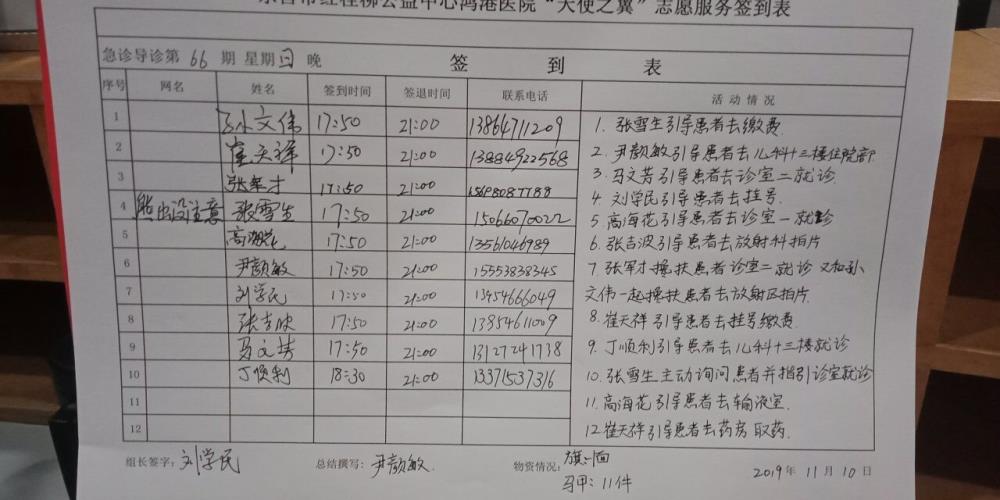 东营市红柽柳公益中心鸿港医院“天使之翼”志愿服务签到表
急诊导诊第 66 期 星期日 晚 签 到 表
序号 网名 姓名 签到时间 签退时间 联系电话 活动情况
1 孙文伟 17:50 21:00 13864711209
2 崔天祥 17:50 21:00 13884922568
3 张军才 17:50 21:00
4 熊出没注意 张雪生 17:50 21:00 15066070022
5 高海花 17:50 21:00 13561046989
6 尹颜敏 17:50 21:00 15553838345
7 刘学民 17:50 21:00 13454666049
8 张吉波 17:50 21:00 13854611009
9 马文芳 17:50 21:00 13127241738
10 丁顺利 18:30 21:00 13371537316
11
12
1. 张雪生引导患者去缴费
2. 尹颜敏引导患者去儿科十三楼住院部
3. 马文芳引导患者去诊室二就诊
4. 刘学民引导患者去挂号
5. 高海花引导患者去诊室一就诊
6. 张吉波引导患者去放射科拍片
7. 张军才搀扶患者诊室二就诊 又和孙
文伟一起搀扶患者去放射区拍片
8. 崔天祥引导患者去挂号缴费
9. 丁顺利引导患者去儿科十三楼就诊
10. 张雪生主动询问患者并指引诊室就诊
11. 高海花引导患者去输液室.
12. 崔天祥引导患者去药房取药.
组长签字: 刘学民 总结撰写: 尹颜敏. 物资情况: 旗:1面
马甲: 11件
2019年 11月 10日